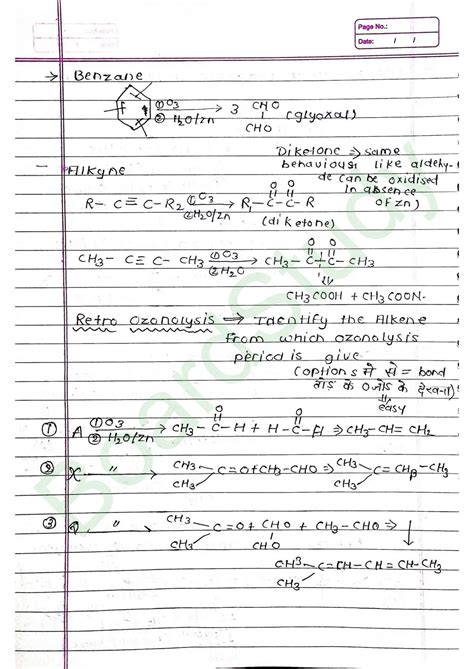 Page No.:
Date: / /
→ Benzane
① O3
② H2O/Zn → 3 CHO
CHO (glyoxal)
Diketone ⇒ same
behaviour like aldehy-
de can be oxidised
in absence
of zn)
- Alkyne
R- C ≡ C- R2 ①O3 ②H2O/Zn → R1- C - C - R
O O
(diketone)
CH3- C ≡ C- CH3 ①O3 ②H2O → CH3- C + C - CH3
O O
CH3COOH + CH3COON.
Retro Ozonolysis → Identify the Alkene
from which ozonolysis
period is give.
(options में से = bond
तोड़ के O जोड़ के देखना)
easy
① A ①O3 ②H2O/Zn → CH3- C - H + H - C - H ⇒ CH3- CH= CH2
O O
② X " → CH3- CH3- C = O + CH3- CHO ⇒ CH3- CH3- C = CH- CH3
③ " → CH3- CH3- C = O + CHO CHO + CH3- CHO ⇒
CH3- CH3- C = CH- CH = CH- CH3
BoardStudy